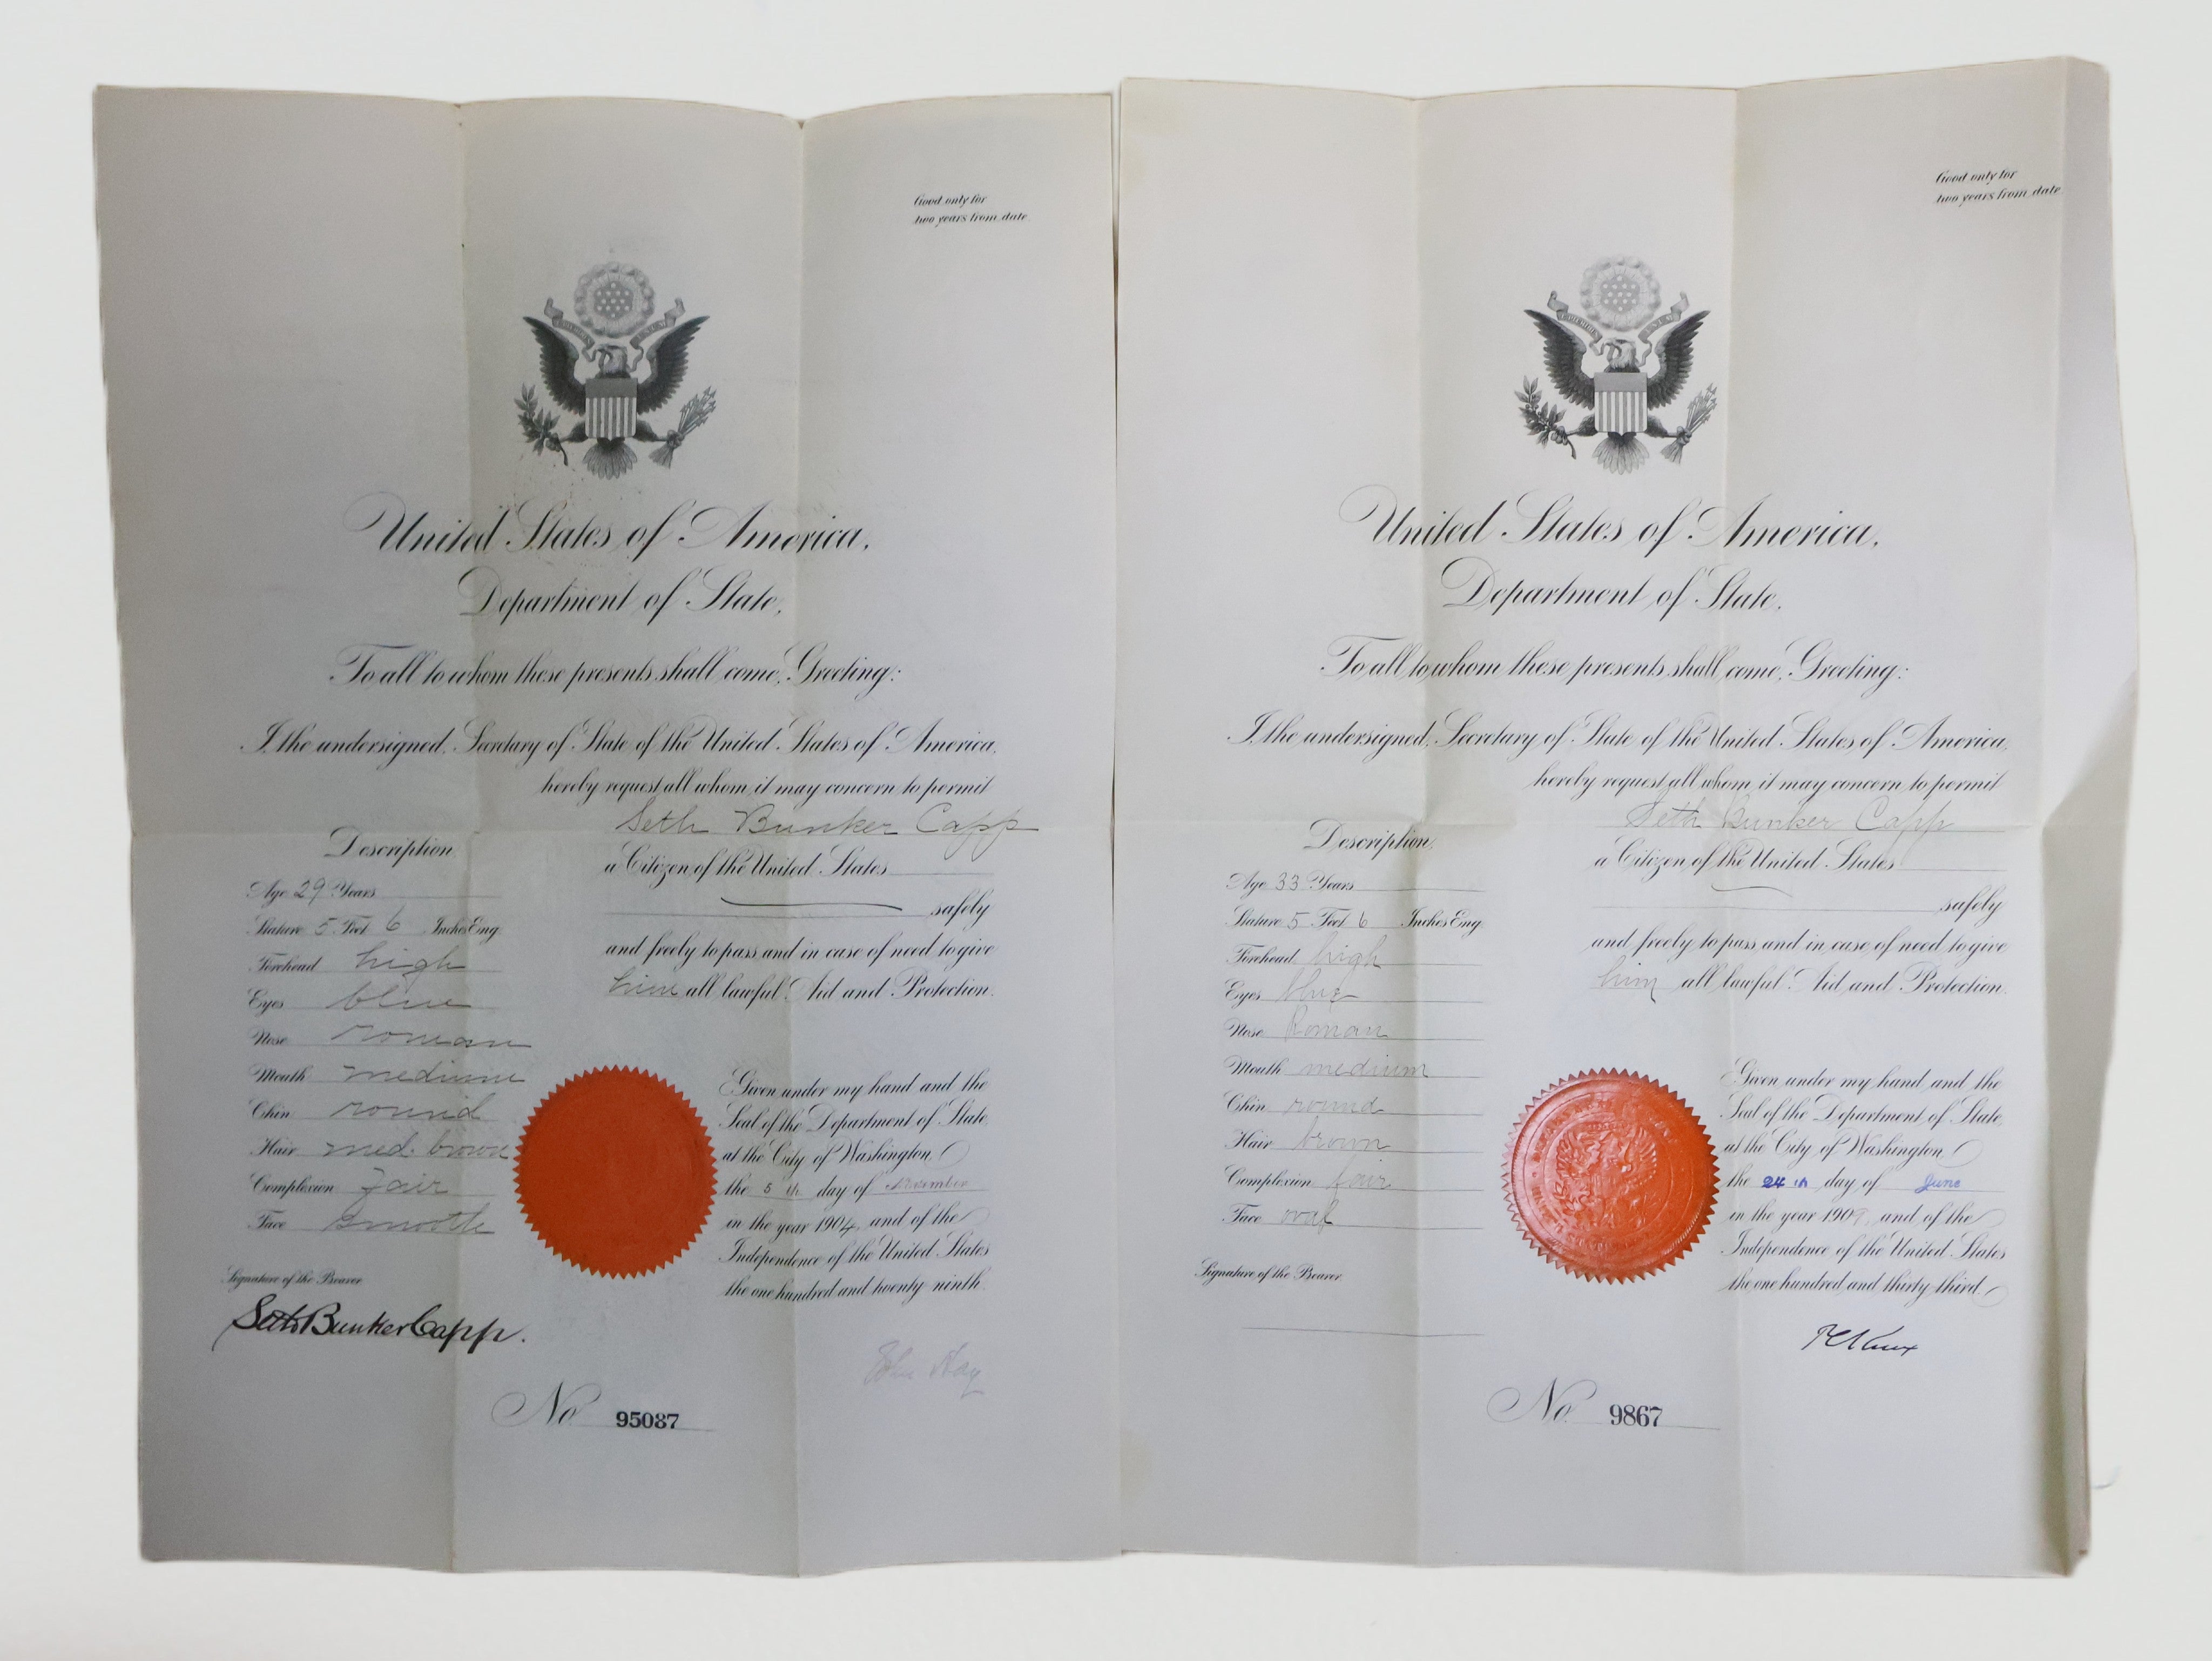 Good only for
two years from date
United States of America,
Department of State,
To all to whom these presents shall come, Greeting:
I, the undersigned, Secretary of State of the United States of America,
hereby request all whom it may concern to permit
Seth Bunker Capp
a Citizen of the United States
safely
and freely to pass and in case of need to give
him all lawful Aid and Protection.
Description
Age 29 Years
Stature 5 Feet 6 Inches Eng.
Forehead high
Eyes blue
Nose roman
Mouth medium
Chin round
Hair med. brown
Complexion Fair
Face Smooth
Signature of the Bearer
Seth Bunker Capp.
Given under my hand and the
Seal of the Department of State,
at the City of Washington
the 5 th day of November
in the year 1904, and of the
Independence of the United States
the one hundred and twenty-ninth.
John Hay
No. 95087
Good only for
two years from date
E PLURIBUS UNUM
United States of America,
Department of State,
To all to whom these presents shall come, Greeting:
I, the undersigned, Secretary of State of the United States of America,
hereby request all whom it may concern to permit
Seth Bunker Capp
a Citizen of the United States
safely
and freely to pass and in case of need to give
him all lawful Aid and Protection.
Description
Age 33 Years
Stature 5 Feet 6 Inches Eng.
Forehead high
Eyes blue
Nose Roman
Mouth medium
Chin round
Hair brown
Complexion fair
Face oval
Signature of the Bearer
Given under my hand and the
Seal of the Department of State,
at the City of Washington
the 24 th day of June
in the year 1909, and of the
Independence of the United States
the one hundred and thirty-third.
P C Knox
No. 9867